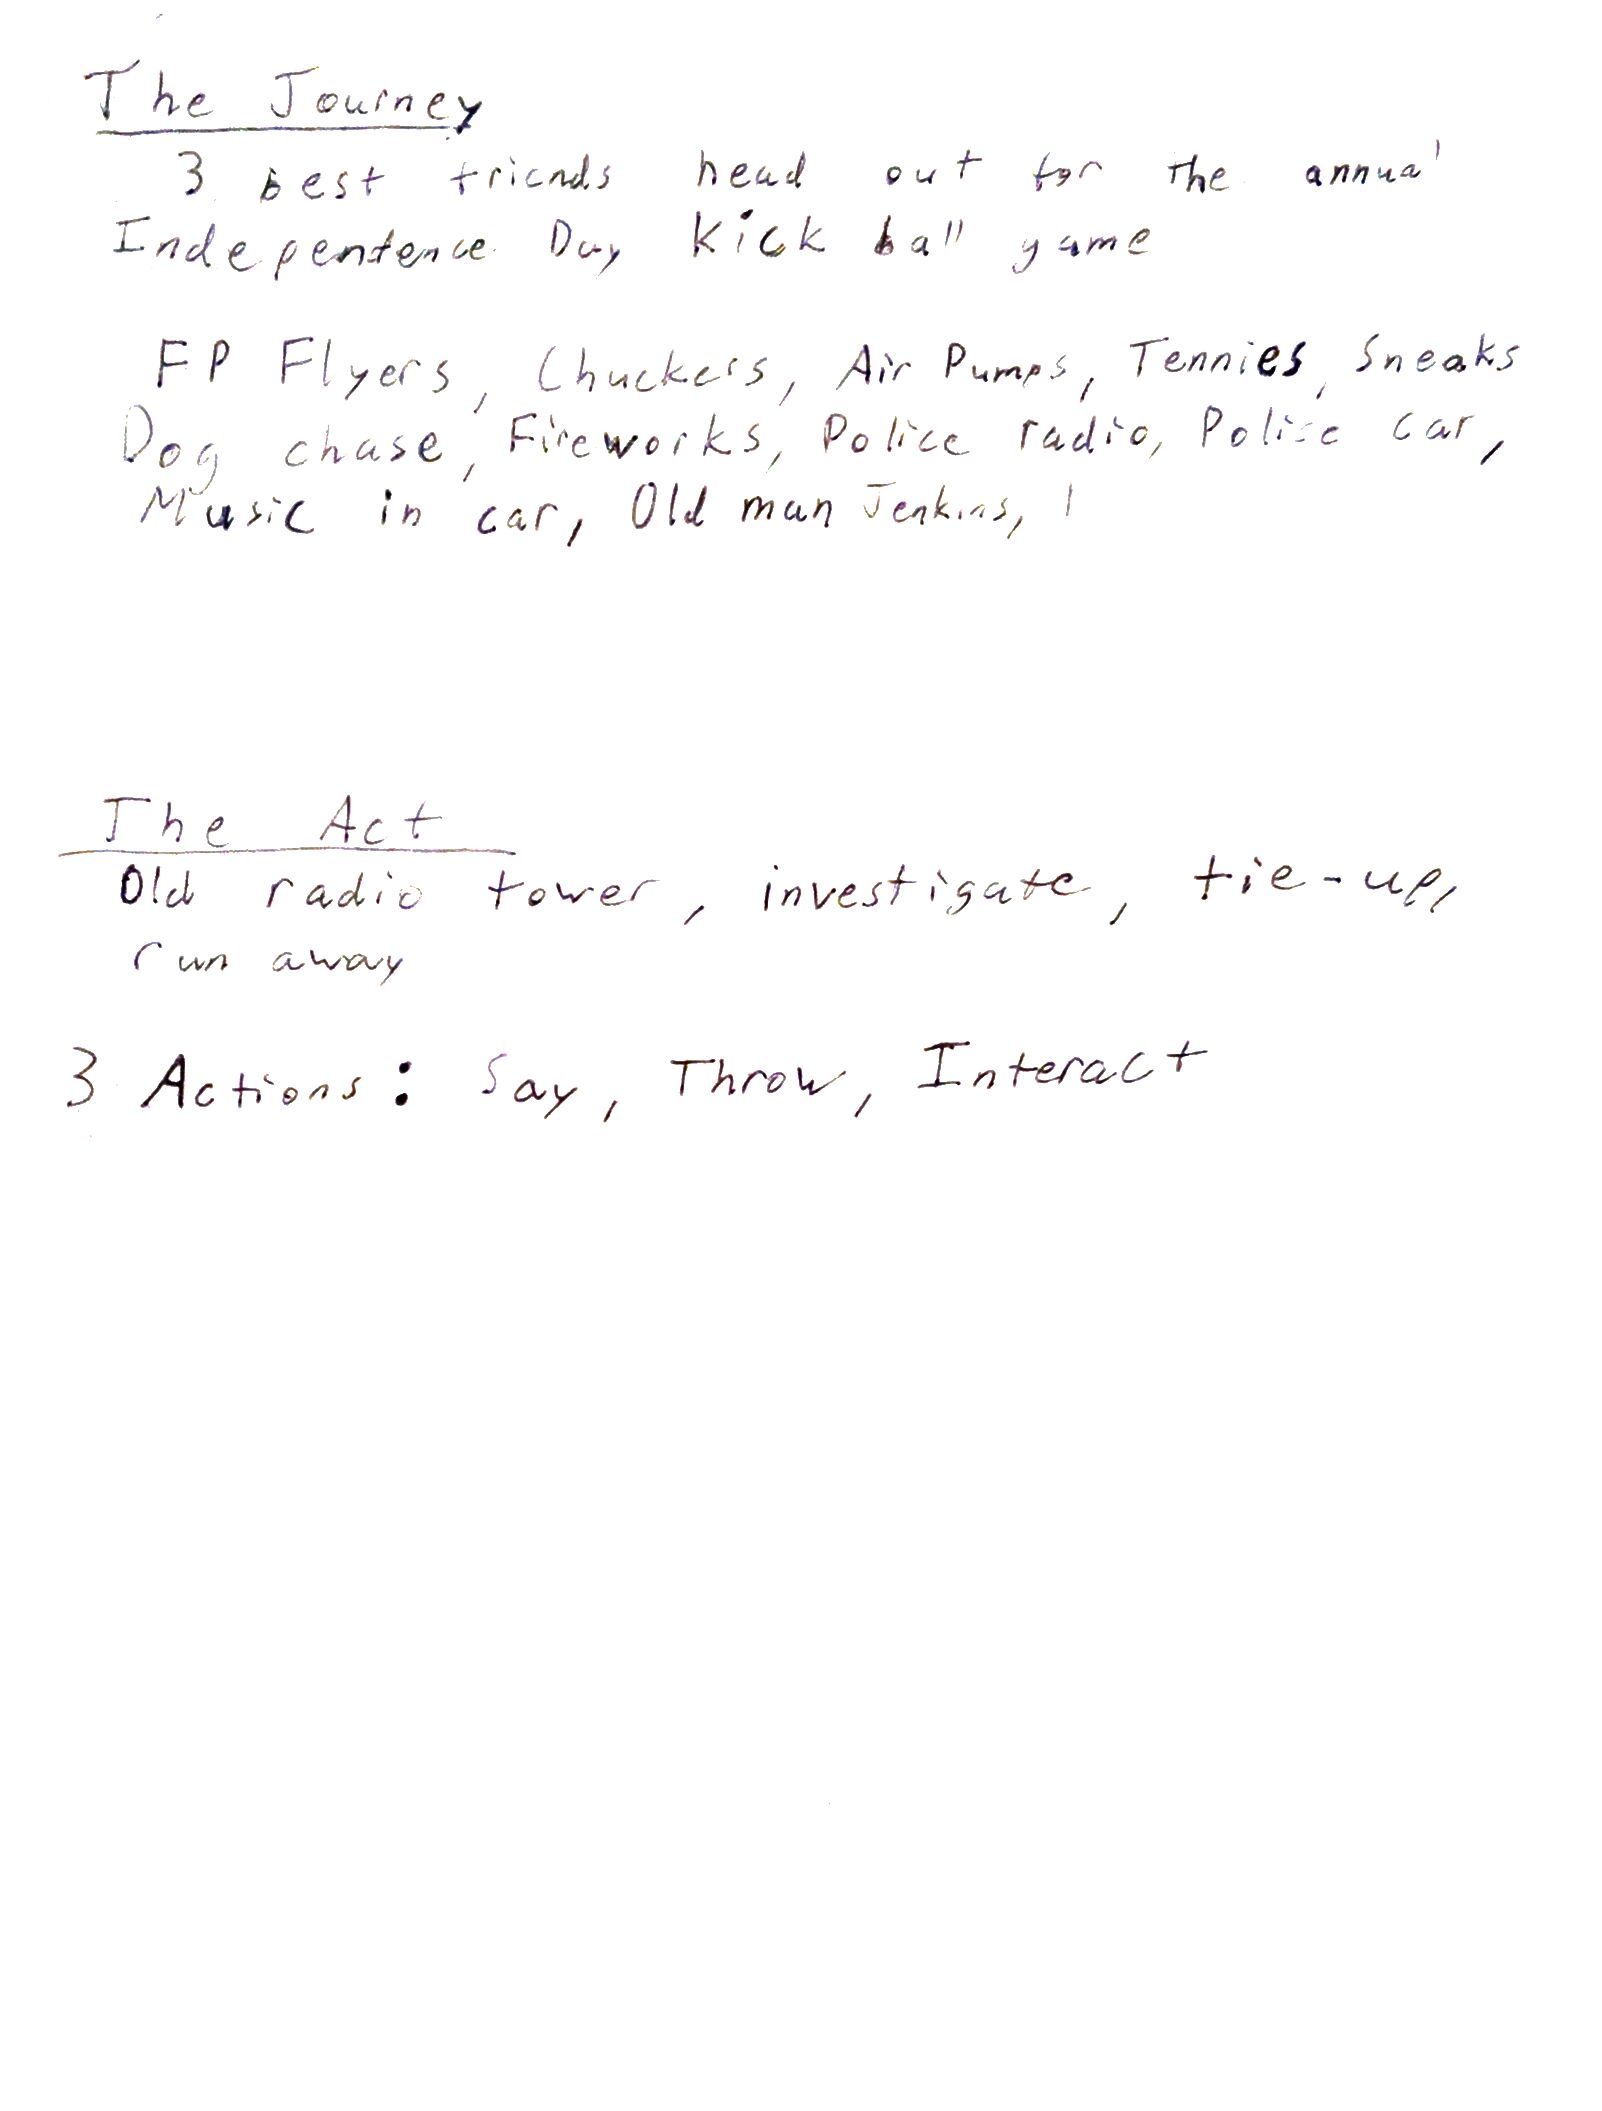 The Journey
3 best friends head out for the annual
Indepentence Day Kick ball game
FP Flyers, Chuckers, Air Pumps, Tennies, Sneaks
Dog chase, Fireworks, Police radio, Police car,
Music in car, Old man Jenkins, |
The Act
Old radio tower, investigate, tie-up,
run away
3 Actions: Say, Throw, Interact